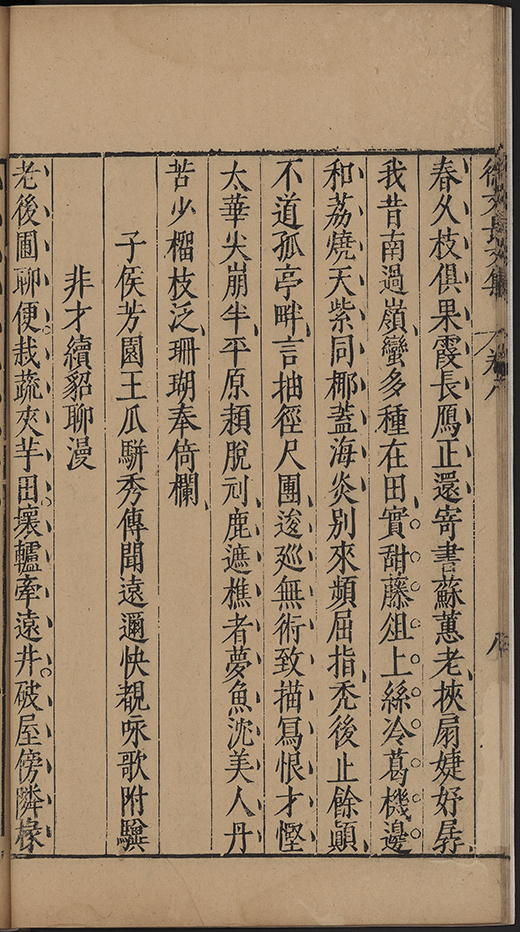 徐文長文集 卷八 八
春久枝俱果霞長鴈正還寄書蘇蕙老挾扇婕妤孱
我昔南過嶺蠻多種在田實甜藤俎上絲冷葛機邊
和荔燒天紫同椰蓋海炎別來頻屈指禿後止餘顛
不道孤亭畔言抽徑尺團逡巡無術致描寫恨才慳
太華尖崩半平原頛脫刓鹿遮樵者夢魚沈美人丹
苦少榴枝泛珊瑚奉倚欄
子侯芳園王瓜駢秀傳聞遠邇快覩咏歌附驥
非才續貂聊漫
老後圃聊便栽蔬夾芋田壤轤牽遠井破屋傍隣椽